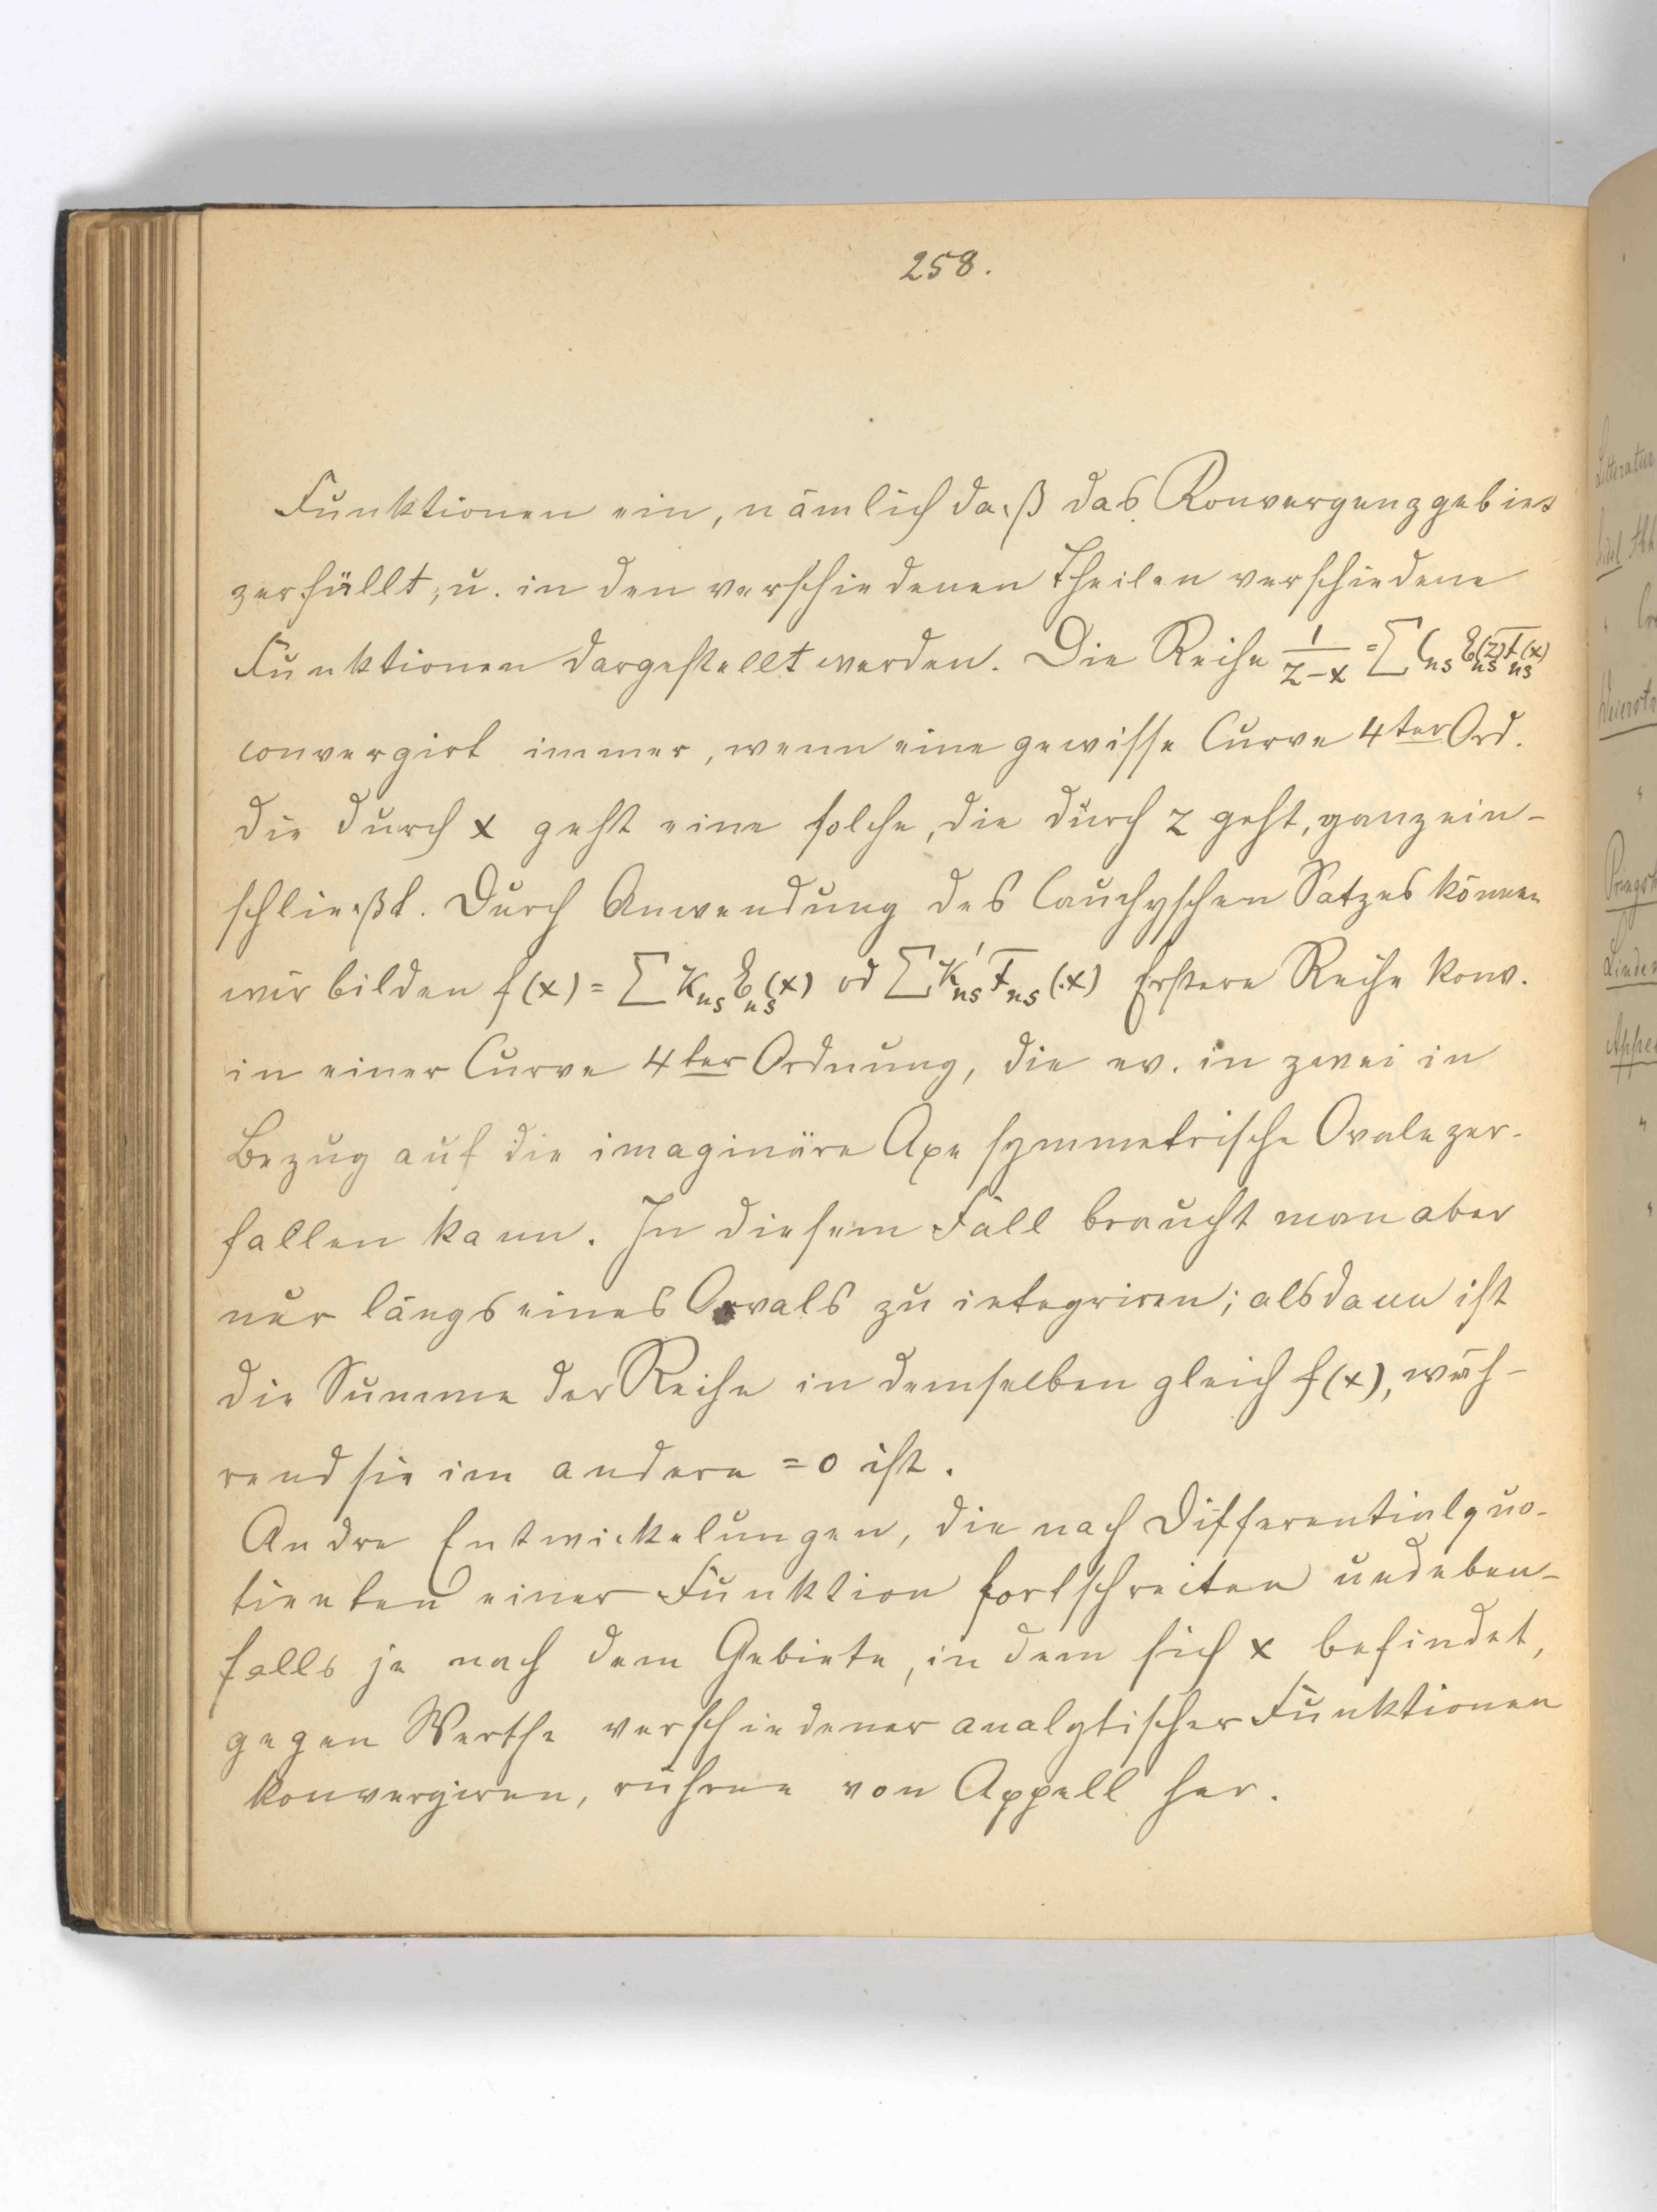 258.
Funktionen ein, nämlich daß das Konvergenzgebiet
zerfällt, u. in den verschiedenen Theilen verschiedene
Funktionen dargestellt werden. Die Reihe 1/(z-x) = ∑ C_ns E_ns(z) F_ns(x)
convergirt immer, wenn eine gewisse Curve 4ter Ord.
die durch x geht eine solche, die durch z geht, ganz ein-
schließt. Durch Anwendung des Cauchyschen Satzes können
wir bilden f(x) = ∑ K_ns E_ns(x) od ∑ K'_ns F_ns(x) Erstere Reihe konv.
in einer Curve 4ter Ordnung, die ev. in zwei in
Bezug auf die imaginäre Axe symmetrische Ovale zer-
fallen kann. In diesem Fall braucht man aber
nur längs eines Ovals zu integriren; alsdann ist
die Summe der Reihe in demselben gleich f(x), wäh-
rend sie im andern = 0 ist.
Andre Entwickelungen, die nach Differentialquo-
tienten einer Funktion fortschreiten und eben-
falls je nach dem Gebiete, in dem sich x befindet,
gegen Werthe verschiedener analytischer Funktionen
konvergiren, rühren von Appell her.
Litteratur